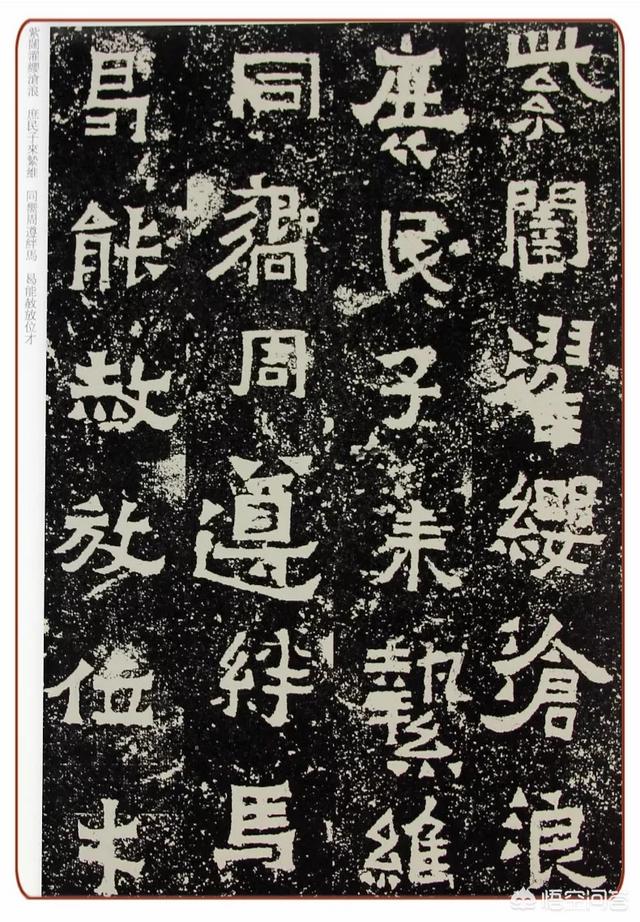 紫闥濯纓滄浪
庶民子來縶維
同周遵絆馬
曷能赦放位才
紫闥濯纓滄浪 庶民子來縶維 同周遵絆馬 曷能赦放位才
悟空问答